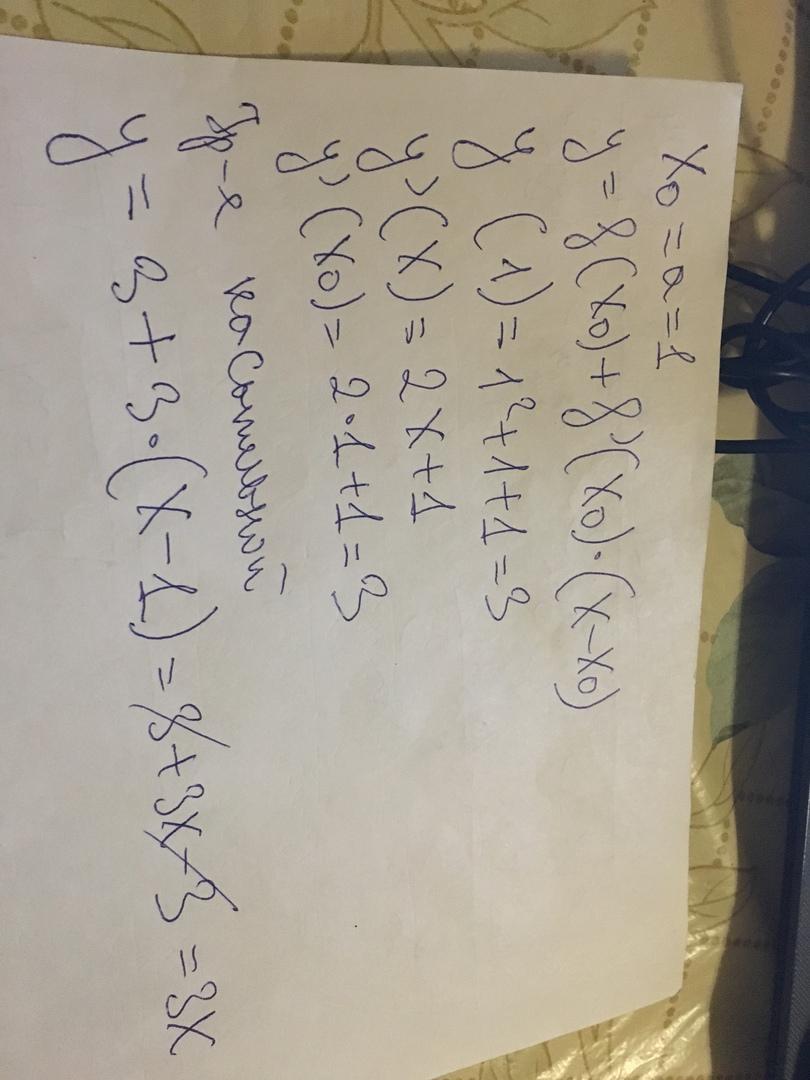 x0 = a = 1
y = f(x0) + f'(x0)·(x-x0)
y (1) = 1²+1+1 = 3
y'(x) = 2x+1
y'(x0) = 2·1+1 = 3
Ур-е касательной
y = 3+3·(x-1) = 3+3x-3 = 3x